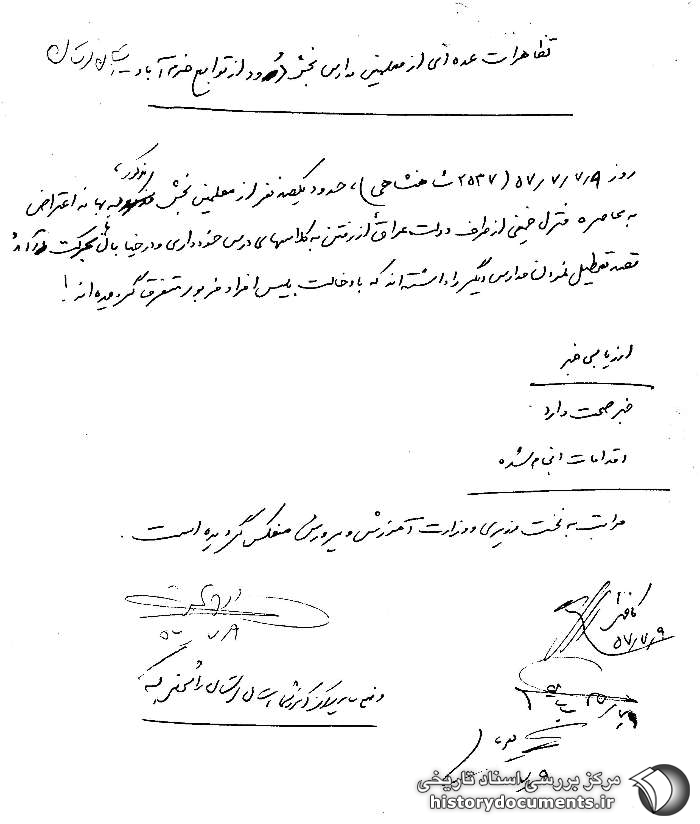 تظاهرات عده‌ای از معلمین مدارس بخش دورود از توابع خرم آباد - استان لرستان
روز ۵۷/۷/۹ (۲۵۳۷ شاهنشاهی)، حدود یکصد نفر از معلمین بخش مذکور، به بهانه اعتراض
به محاصره منزل خمینی از طرف دولت عراق از رفتن به کلاسهای درس خودداری و در خیابان بحرکت درآمده
قصد تعطیل نمودن مدارس دیگر را داشته‌اند که با دخالت پلیس افراد مزبور متفرق گردیده‌اند!
ارزیابی خبر
خبر صحت دارد
اقدامات انجام شده
مراتب به نخست وزیری و وزارت آموزش و پرورش منعکس گردیده است.
۵۷/۷/۹
مرکز بررسی اسناد تاریخی
historydocuments.ir